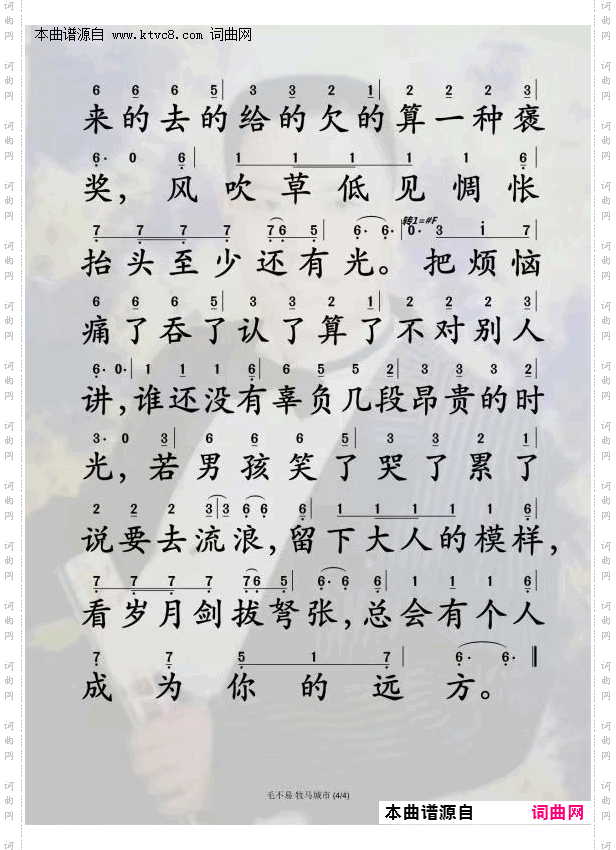 本曲谱源自 www.ktvc8.com 词曲网
6 6 6 5 3 3 2 1 2 2 2 3
来的去的给的欠的算一种褒
6· 0 6 1 1 1 1 1 6
奖，风吹草低见惆怅
转1=#F
7 7 7 7 7 6 5 6· 6· 0· 3 i 7
抬头至少还有光。把烦恼
6 6 6 5 3 3 2 1 2 2 2 3
痛了吞了认了算了不对别人
6· 0· 1 1 1 6 6 5 5 2 3 3 3 2
讲，谁还没有辜负几段昂贵的时
3· 0 3 6 6 6 5 3 3 2 1
光，若男孩笑了哭了累了
2 2 2 3 3 6· 6· 6 1 1 1 1 1 6
说要去流浪，留下大人的模样，
7 7 7 7 7 6 5 6· 6· 6 1 1 1 6
看岁月剑拔弩张，总会有个人
7 7 5 1 7 6· 6·
成为你的远方。
毛不易 牧马城市 (4/4)
本曲谱源自 词曲网
词曲网